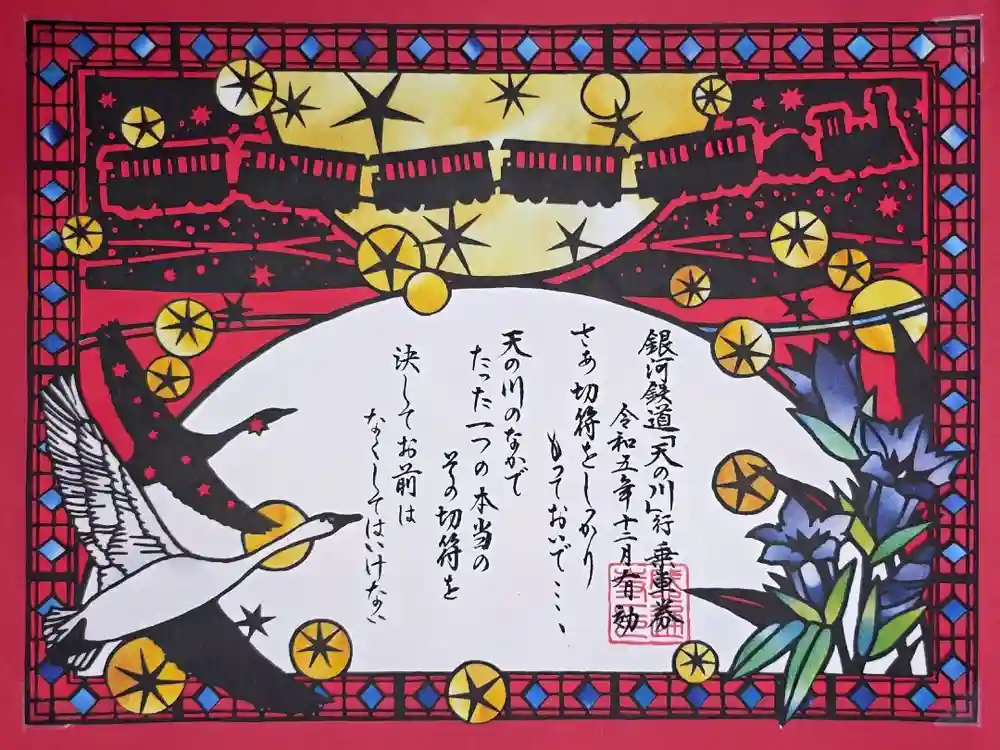 銀河鉄道「天の川」行 乗車券
令和五年十二月有効
さあ 切符をしっかり
もっておいで……
天の川のなかで
たった一つの本当の
その切符を
決してお前は
なくしてはいけない